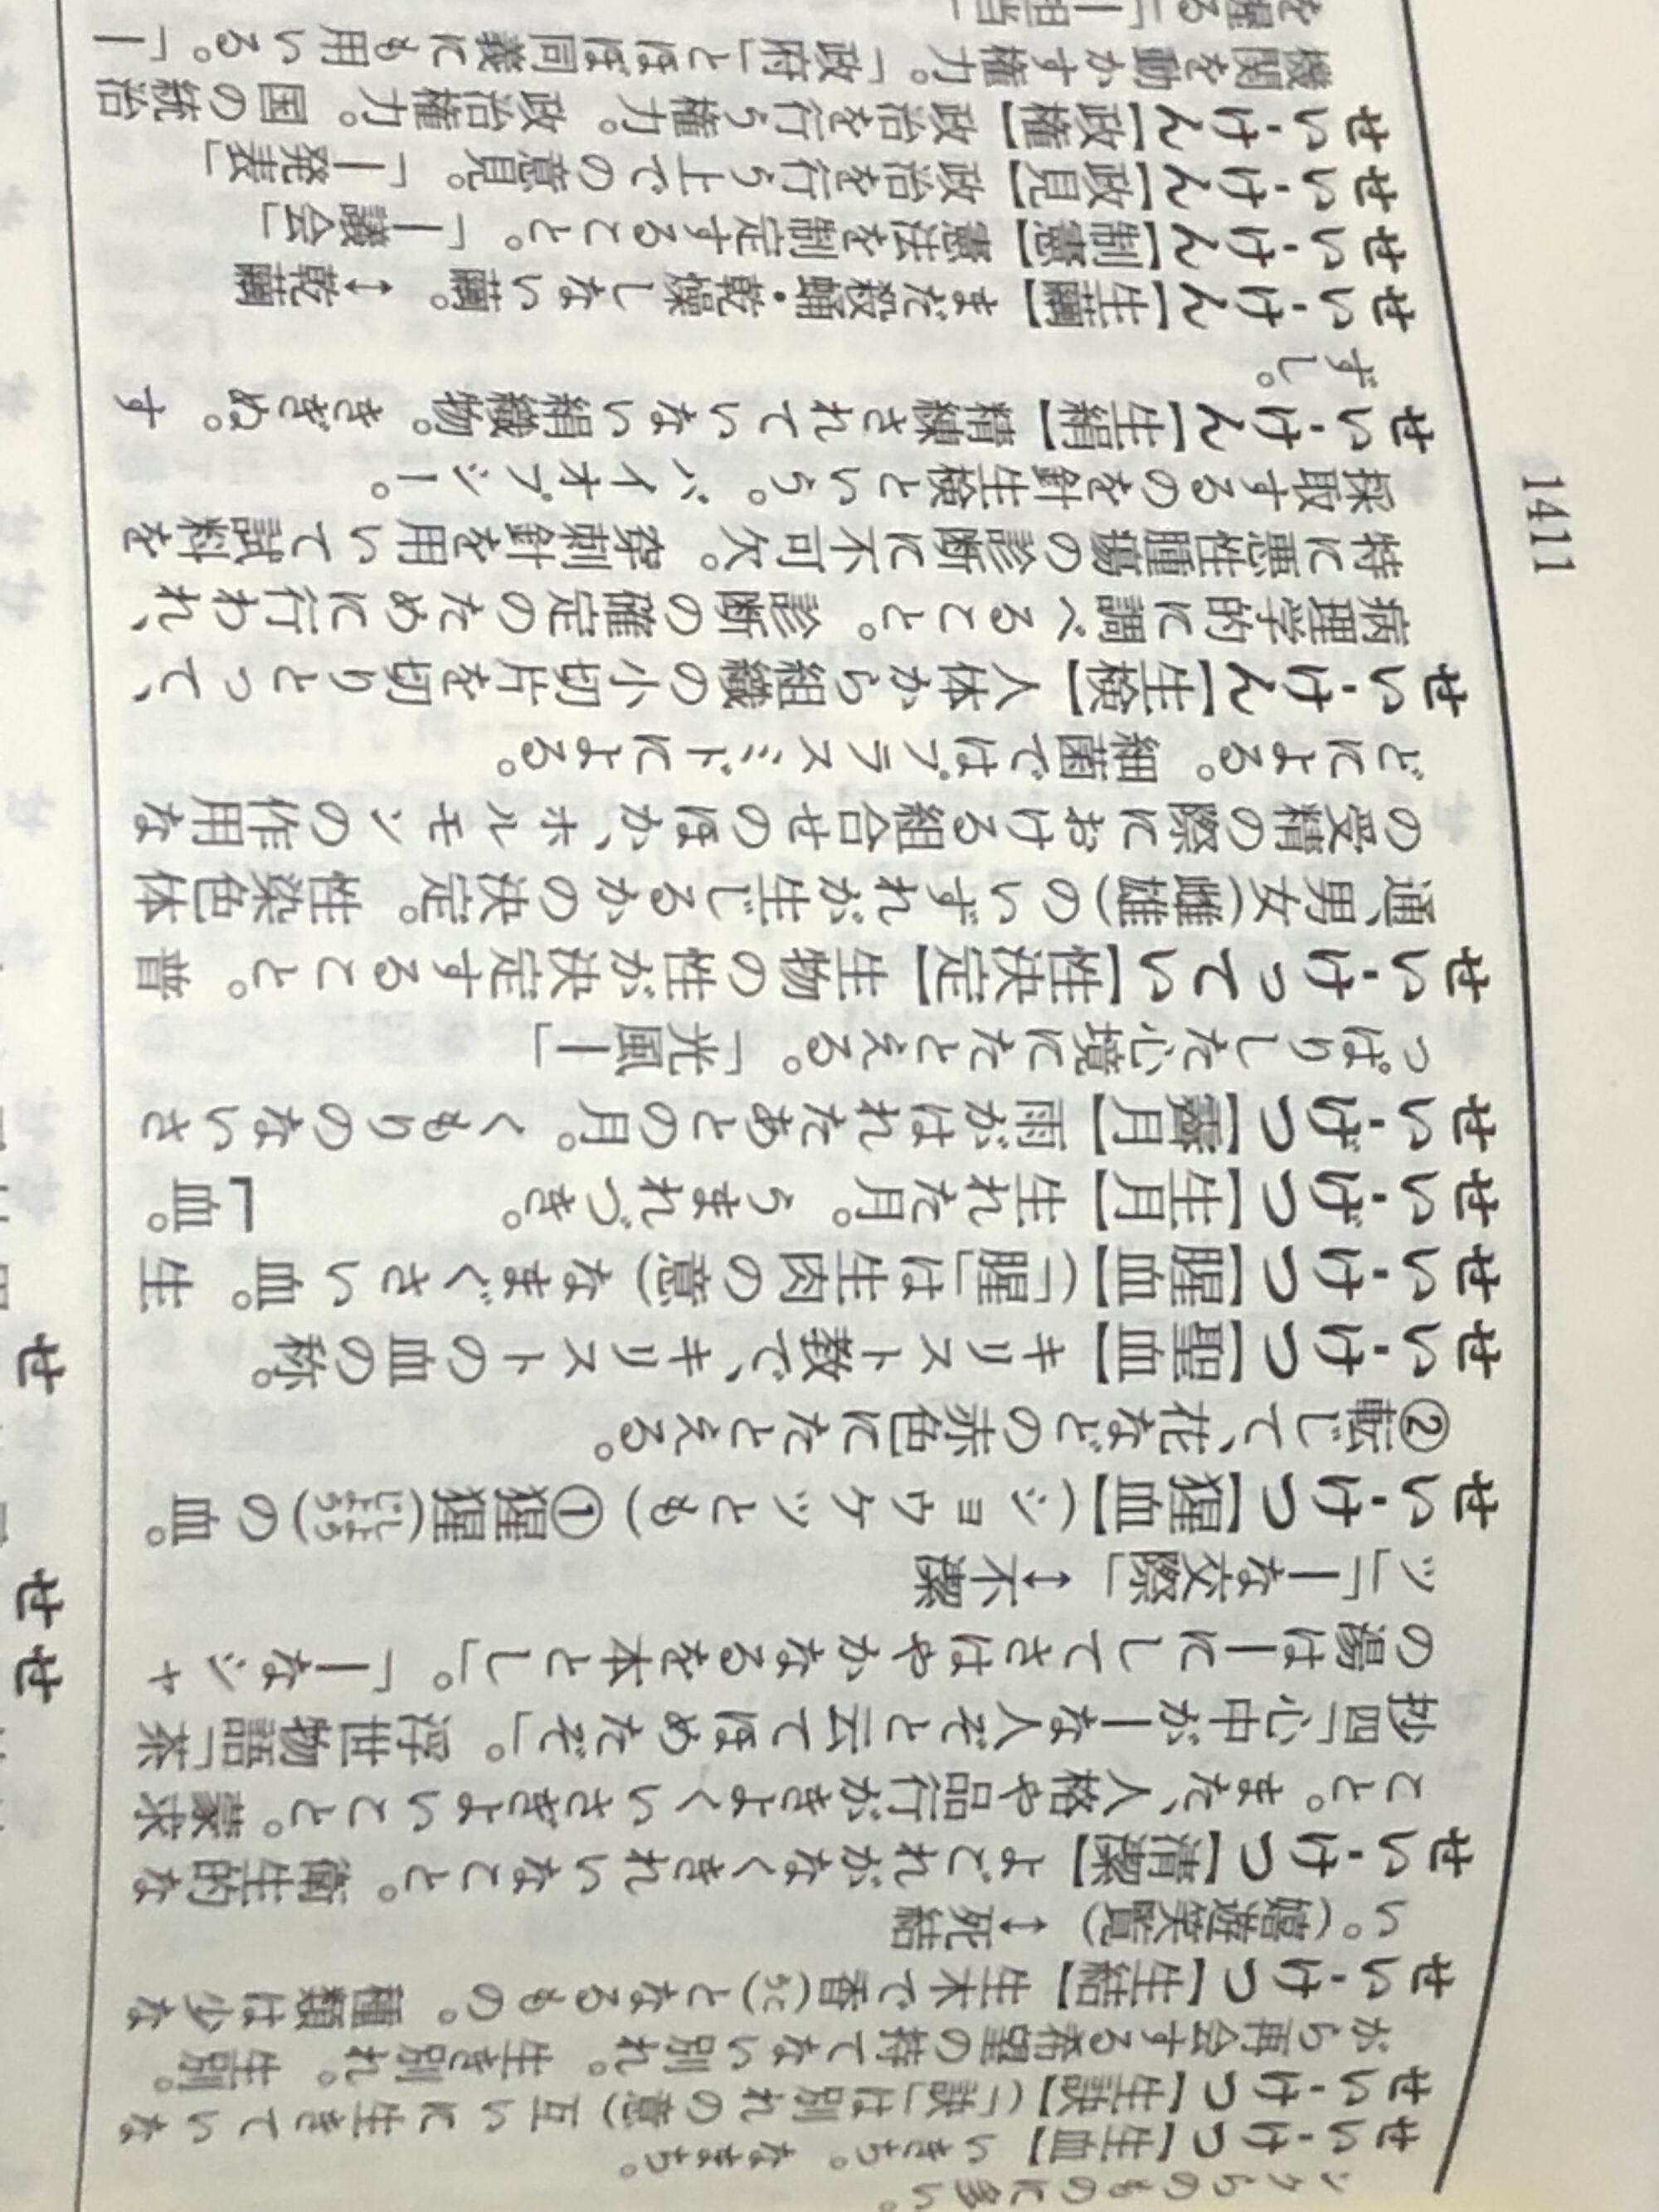 1411
せい‐けつ【生血】いきち。なまち。
せい‐けつ【生訣】(「訣」は別れの意)互いに生きていな
がら再会する希望の持てない別れ。生き別れ。生別。
せい‐けつ【生結】生木で香(こう)となるもの。種類は少な
い。(嬉遊笑覧)↔死結
せい‐けつ【清潔】よごれがなくきれいなこと。衛生的な
こと。また、人格や品行がきよくいさぎよいこと。蒙求
抄四「心中が―な人ぞと云てほめたぞ」。浮世物語「茶
の湯は―にしてさはやかなるを本とし」。「―なシャ
ツ」「―な交際」↔不潔
せい‐けつ【猩血】(ショウケツとも)①猩猩(しょうじょう)の血。
②転じて、花などの赤色にたとえる。
せい‐けつ【聖血】キリスト教で、キリストの血の称。
せい‐けつ【腥血】(「腥」は生肉の意)なまぐさい血。生
せい‐げつ【生月】生れた月。うまれづき。 「血。
せい‐げつ【霽月】雨がはれたあとの月。くもりのないさ
っぱりした心境にたとえる。「光風―」
せい‐けってい【性決定】生物の性が決定すること。普
通、男女(雌雄)のいずれが生じるかの決定。性染色体
の受精の際における組合せのほか、ホルモンの作用な
どによる。細菌ではプラスミドによる。
せい‐けん【生検】人体から組織の小切片を切りとって、
病理学的に調べること。診断の確定のために行われ、
特に悪性腫瘍の診断に不可欠。穿刺針を用いて試料を
採取するのを針生検という。バイオプシー。
せい‐けん【生絹】精練されていない絹織物。きぎぬ。す
ずし。
せい‐けん【生繭】まだ殺蛹・乾燥しない繭。↔乾繭
せい‐けん【制憲】憲法を制定すること。「―議会」
せい‐けん【政見】政治を行う上での意見。「―発表」
せい‐けん【政権】政治を行う権力。政治権力。国の統治
機関を動かす権力。「政府」とほぼ同義にも用いる。「―
を握る」「―担当」